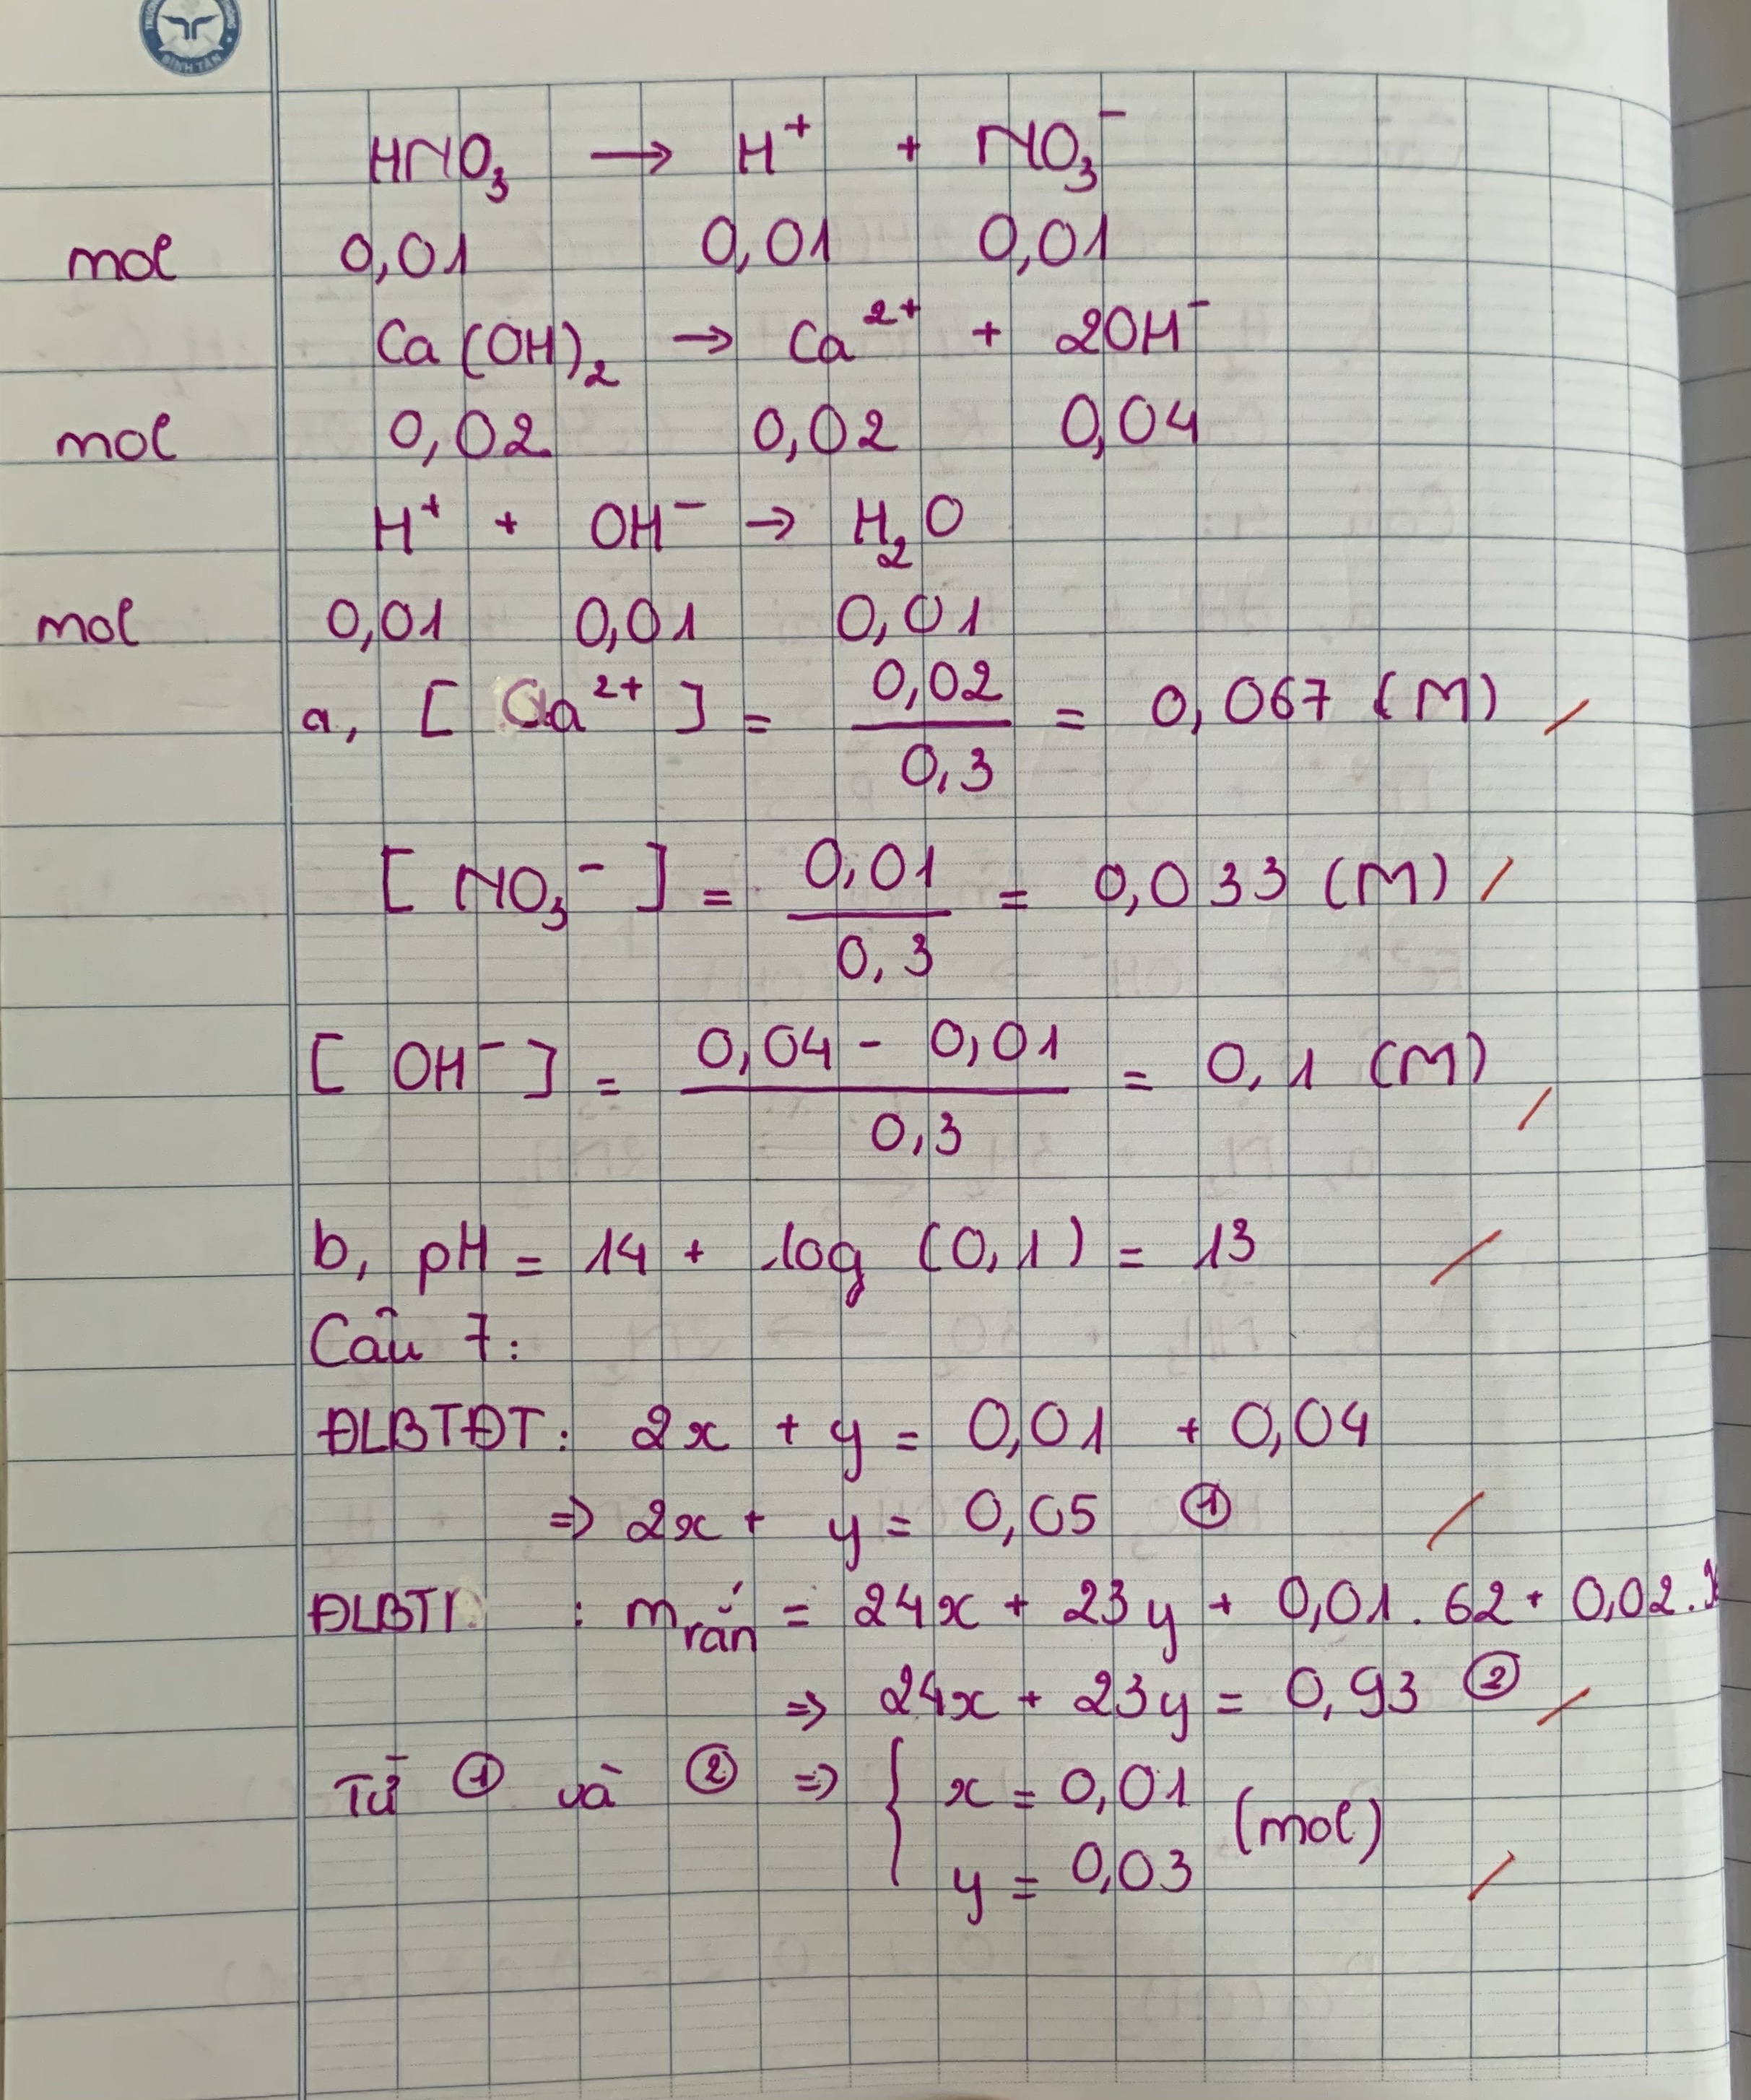 BÌNH TÂN
HNO₃ → H⁺ + NO₃⁻
mol 0,01 0,01 0,01
Ca(OH)₂ → Ca²⁺ + 2OH⁻
mol 0,02 0,02 0,04
H⁺ + OH⁻ → H₂O
mol 0,01 0,01 0,01
a, [Ca²⁺] = 0,02 / 0,3 = 0,067 (M)
[NO₃⁻] = 0,01 / 0,3 = 0,033 (M)
[OH⁻] = (0,04 - 0,01) / 0,3 = 0,1 (M)
b, pH = 14 + log (0,1) = 13
Câu 7:
ĐLBTĐT: 2x + y = 0,01 + 0,04
⇒ 2x + y = 0,05 ①
: m rắn = 24x + 23y + 0,01.62 + 0,02.
⇒ 24x + 23y = 0,93 ②
Từ ① và ② ⇒ { x = 0,01
y = 0,03 (mol)